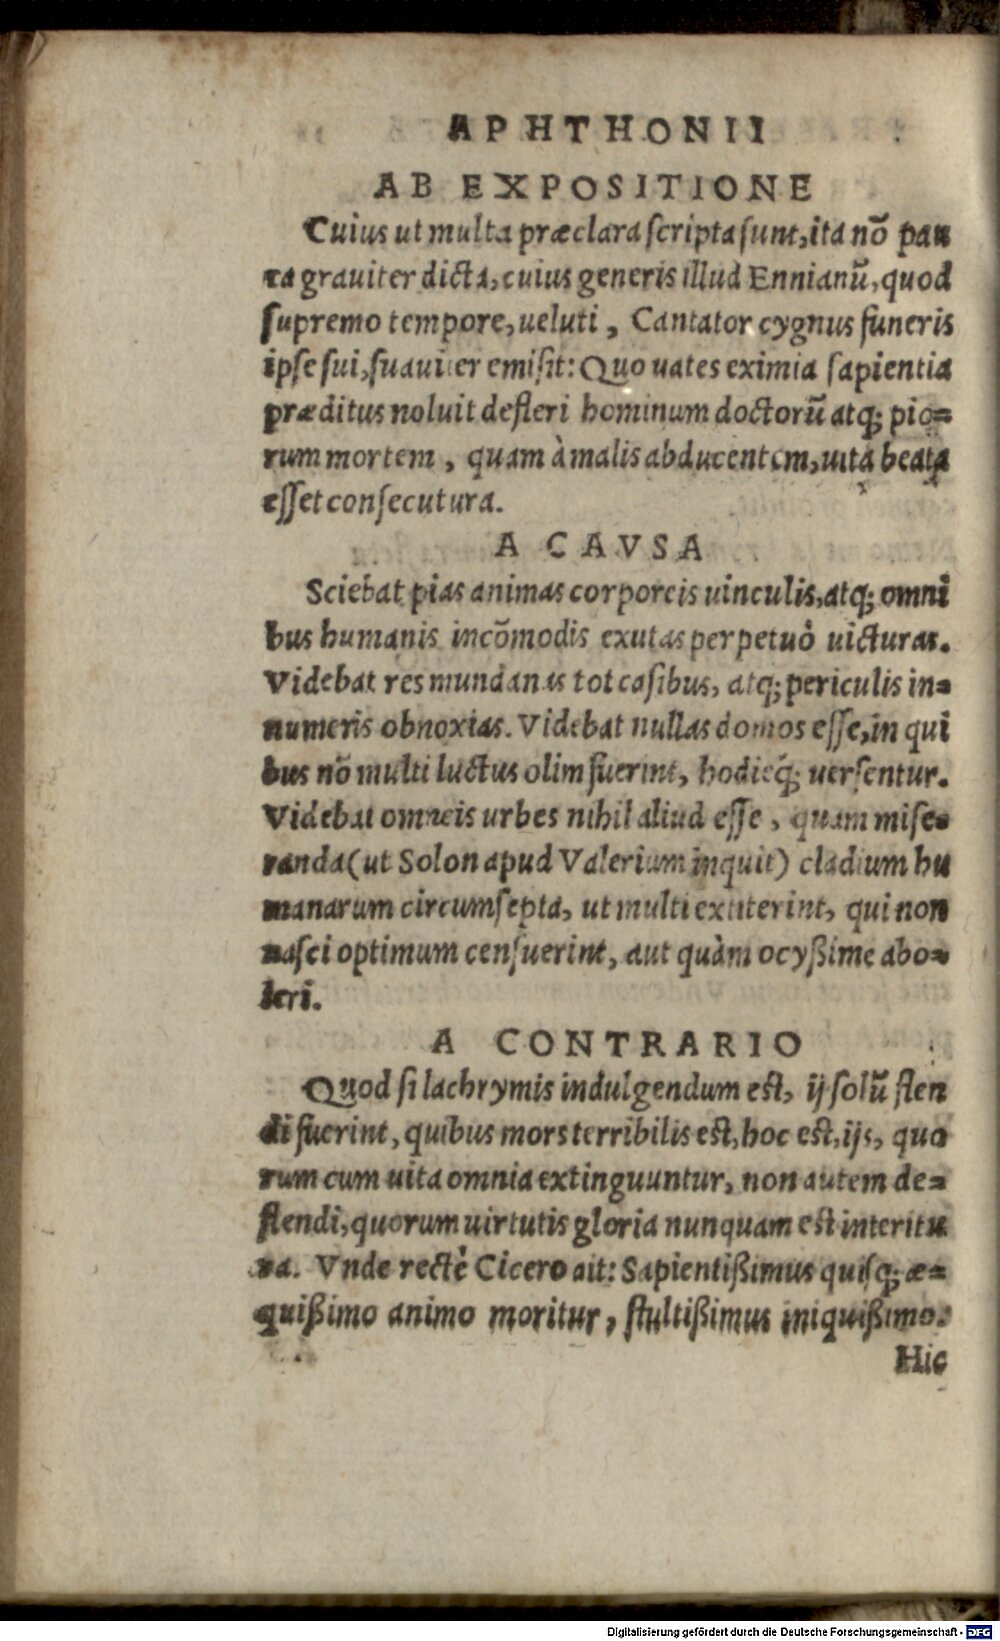 APHTHONII
AB EXPOSITIONE
Cuius ut multa præclara scripta sunt, ita nõ pau
ca graviter dicta, cuius generis illud Ennianũ, quod
supremo tempore, ueluti, Cantator cygnus funeris
ipse sui, suauiter emisit: Quo uates eximia sapientia
præditus noluit defleri hominum doctorũ atq; pio=
rum mortem, quam à malis abducentem, uita beata
esset consecutura.
A CAVSA
Sciebat pias animas corporeis uinculis, atq; omni
bus humanis incõmodis exutas perpetuò uicturas.
Videbat res mundanas tot casibus, atq; periculis in=
numeris obnoxias. Videbat nullas domos esse, in qui
bus nõ multi luctus olim fuerint, hodieq́; uersentur.
Videbat omneis urbes nihil aliud esse, quam mise=
randa (ut Solon apud Valerium inquit) cladium hu
manarum circumsepta, ut multi extiterint, qui non
nasci optimum censuerint, aut quàm ocyßime abo=
leri.
A CONTRARIO
Quod si lachrymis indulgendum est, ij solũ flen
di fuerint, quibus mors terribilis est, hoc est, ijs, quo
rum cum uita omnia extinguuntur, non autem de=
flendi, quorum uirtutis gloria nunquam est interitu
ra. Vnde rectè Cicero ait: Sapientißimus quisq; æ=
quißimo animo moritur, stultißimus iniquißimo.
Hic
Digitalisierung gefördert durch die Deutsche Forschungsgemeinschaft - DFG